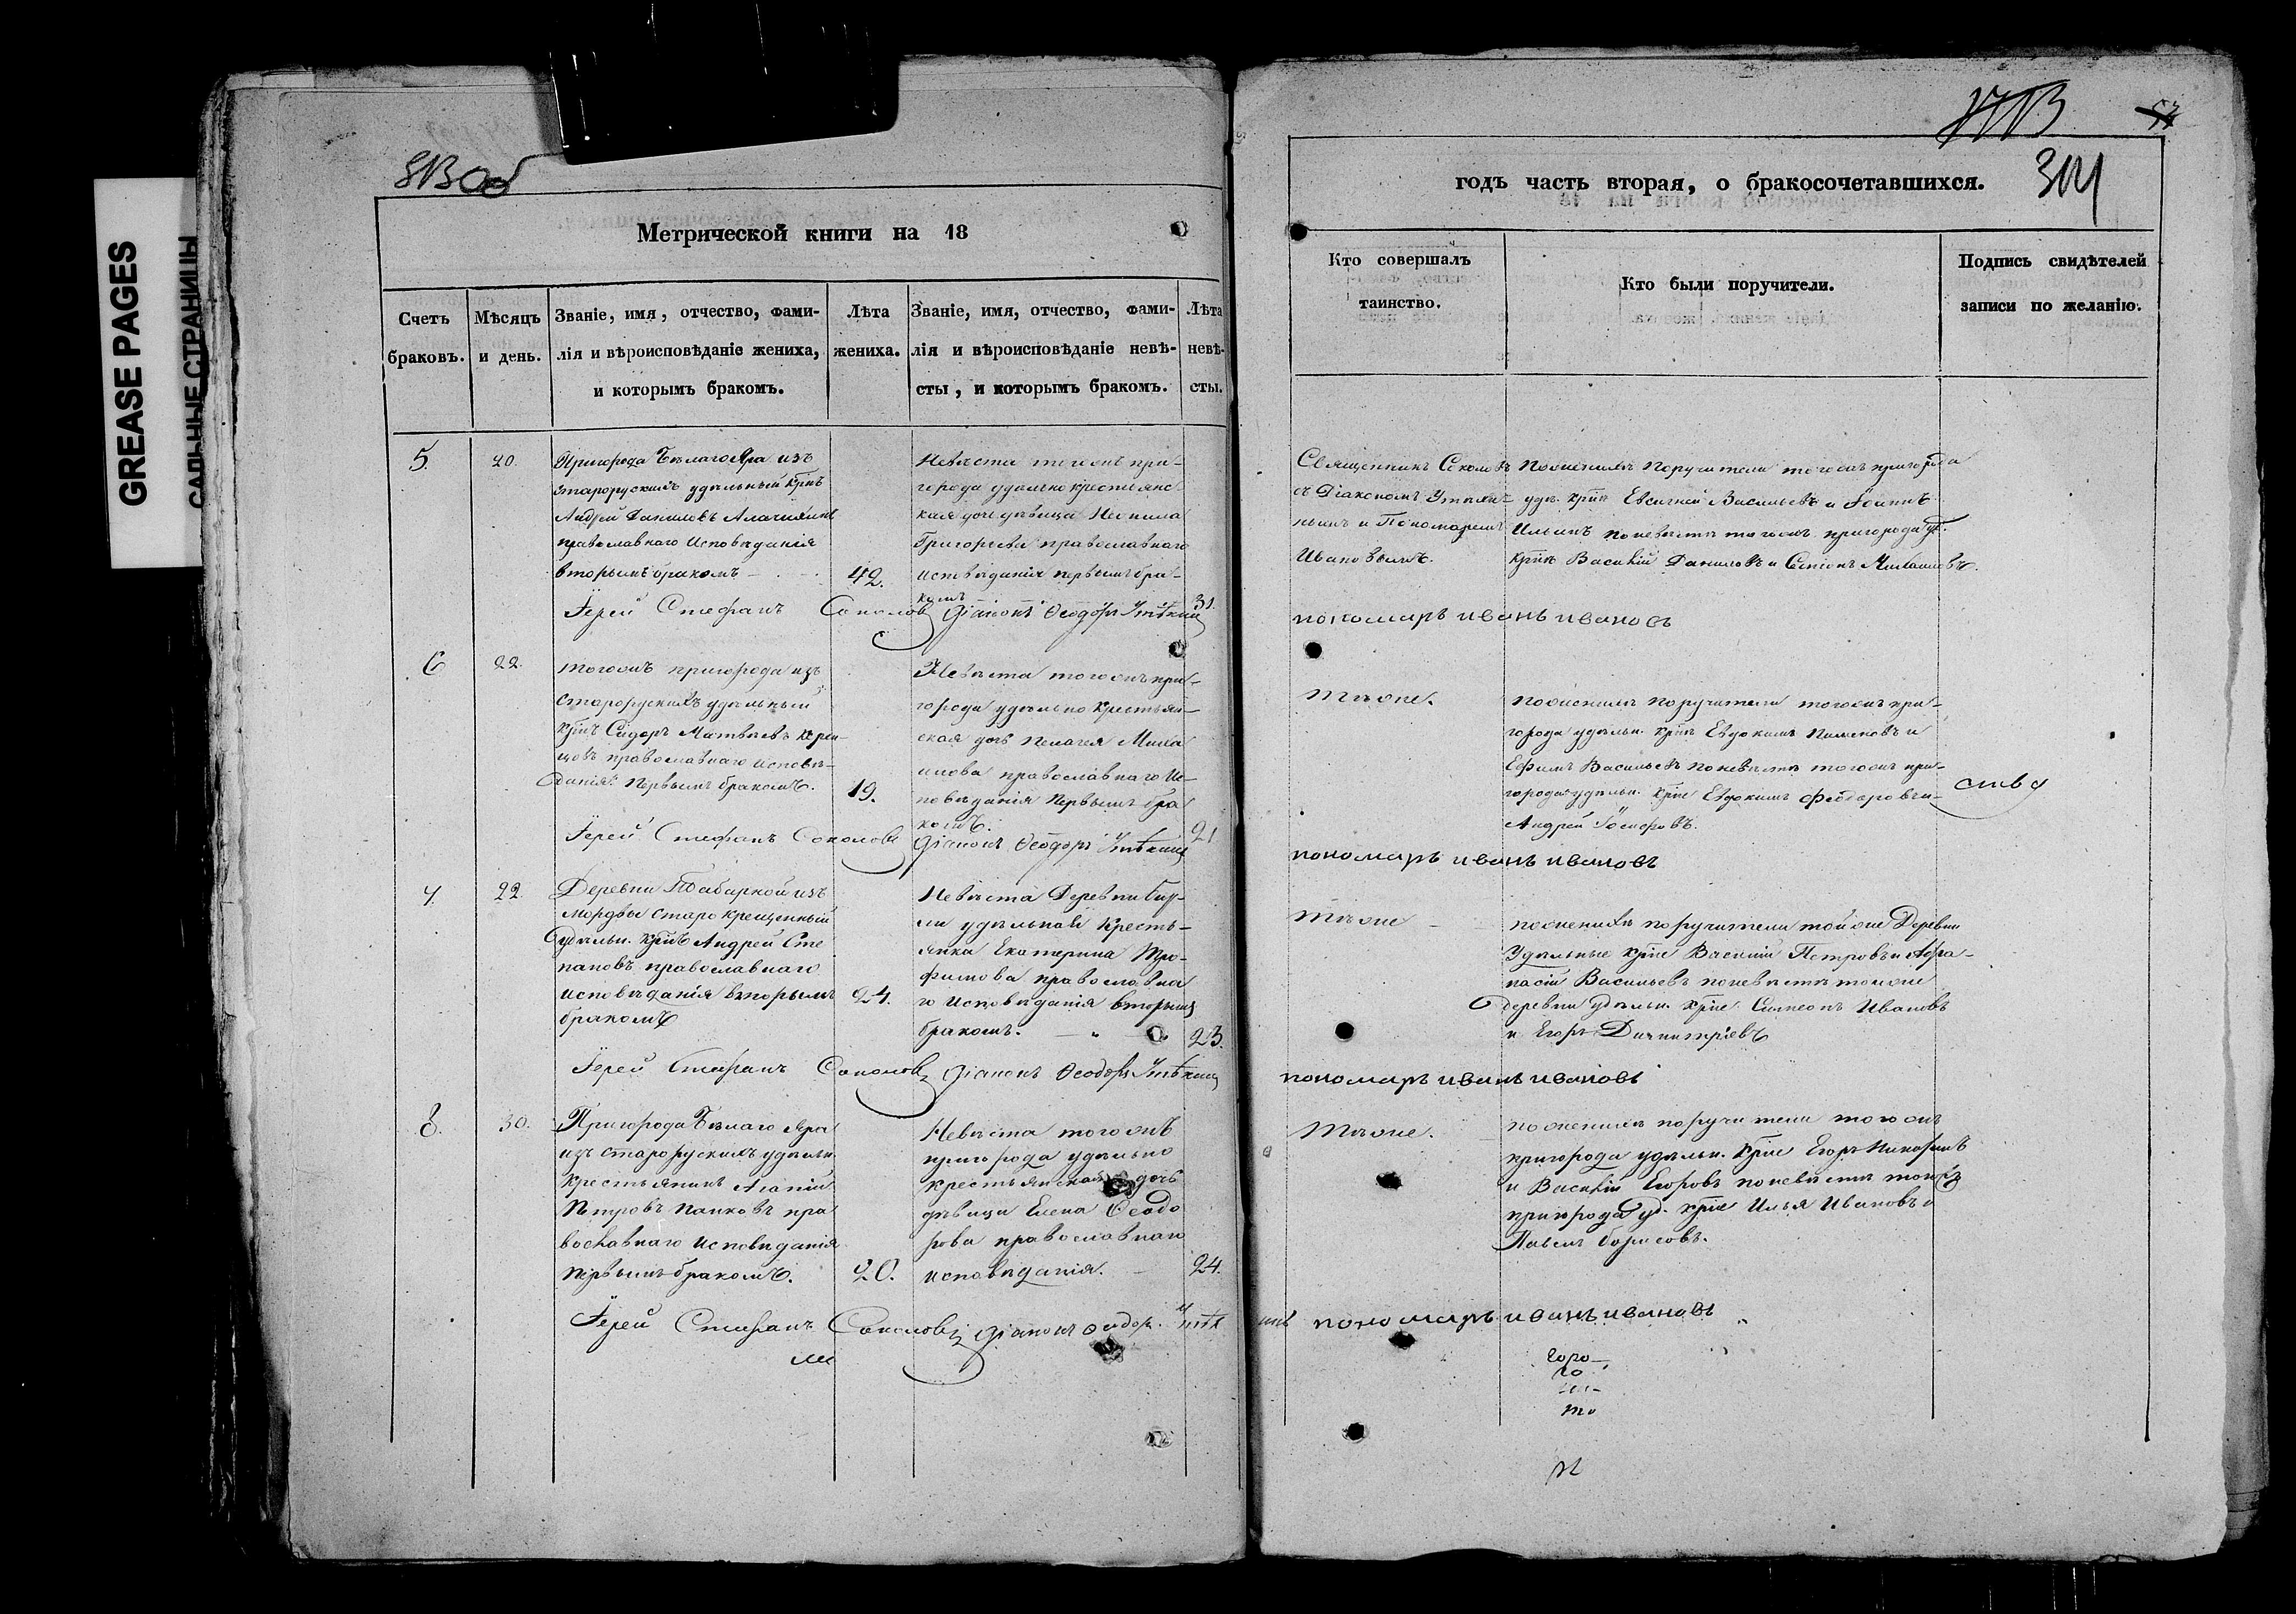 GREASE PAGES
САЛЬНЫЕ СТРАНИЦЫ
Метрической книги на 18
Счетъ браковъ.
Мѣсяцъ и день.
Званіе, имя, отчество, фами-
лія и вѣроисповѣданіе жениха,
и которымъ бракомъ.
Лѣта жениха.
Званіе, имя, отчество, фами-
лія и вѣроисповѣданіе невѣ-
сты, и которымъ бракомъ.
Лѣта невѣ-
сты.
5.
20.
Пригорода Бѣлаго Яра изъ
старорускихъ удѣльный крнъ
Андрей Даниловъ
православнаго Исповѣданія
вторымъ бракомъ
42.
Невѣста тогожъ при-
города удѣльно крестьянс
кая дочь дѣвица Неонила
Григорьева православнаго
исповѣданія первымъ бра-
комъ
31.
Іерей Стефанъ Соколовъ
Діаконъ Ѳеодоръ
6
22.
тогожъ пригорода изъ
старорускихъ удѣльный
крнъ Сидоръ Матвѣевъ
православнаго исповѣ-
данія первымъ бракомъ.
19.
Невѣста тогожъ при-
города удѣльно крестьян-
ская дочь Пелагея Миха
илова православнаго Ис-
повѣданія первымъ бра
комъ.
21
Іерей Стефанъ Соколовъ
Діаконъ Ѳеодоръ
7.
22
Деревни
мордвы старокрещенный
удѣльн. крнъ Андрей Сте
пановъ православнаго
исповѣданія вторымъ
бракомъ
24.
Невѣста Деревни
удѣльной Кресть-
янка Екатерина Тро-
фимова православна
го Исповѣданія вторымъ
бракомъ.
23.
Іерей Стефанъ Соколовъ
Діаконъ Ѳеодоръ
8.
30.
Пригорода Бѣлаго Яра
изъ старорускихъ удѣльн.
Крестьянинъ
Петровъ Панковъ пра
вославнаго исповѣданія
первымъ бракомъ.
20.
Невѣста тогожъ
пригорода удѣльно
крестьянской дочь
дѣвица Елена Ѳеодо
рова православнаго
исповѣданія.
24.
Іерей Стефанъ Соколовъ
годъ часть вторая, о бракосочетавшихся.
304
Кто совершалъ
таинство.
Кто были поручители.
Подпись свидѣтелей
записи по желанію.
Священникъ Соколовъ
съ Діакономъ
и Пономаремъ
Ивановымъ.
по женихѣ поручители тогожъ пригорода
удѣ. крне Евсигней Васильевъ и Іоаннъ
Ильинъ по невѣстѣ тогожъ пригорода уд.
крне Василій Даниловъ и Семенъ Михаиловъ.
пономаръ иванъ ивановъ
Тѣже.
по женихѣ поручители тогожъ при-
города удѣльн. крне Евдокимъ Пименовъ и
Ефимъ Васильевъ по невѣстѣ тогожъ при-
города удѣльн. крне Евдокимъ Феодоровъ и
Андрей Іосифовъ.
пономаръ иванъ ивановъ
Тѣже
по женихѣ поручители той же Деревни
Удѣльные крне Василій Петровъ и Афа-
насій Васильевъ по невѣстѣ той же
деревни удѣльн. крне Симеонъ Ивановъ
и Егоръ Димитріевъ
пономаръ иванъ ивановъ
Тѣже.
по женихѣ поручители тогожъ
пригорода удѣльн. крне Егоръ Никофинъ
и Василій Егоровъ по невѣстѣ тогожъ
пригорода уд. крне Илья Ивановъ и
Павелъ борисовъ.
пономаръ иванъ ивановъ